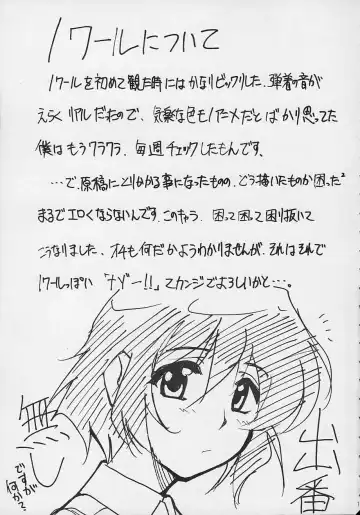 ノワールについて
ノワールを初めて観た時にはかなりビックリした。弾着の音が
えらくリアルだったので、気楽な色モノアニメだとばかり思ってた
僕はもうクラクラ。毎週チェックしたもんです。
…で、原稿にとりかかる事になったものの、どう描いたものか困った²
まるでエロくならないんです。このキャラ。困って困って困り抜いて
こうなりました。オチも何だかようわかりませんが、それはそれで
ノワールっぽい「ナゾー!!」てカンジでよろしいかと…。
出番
無し
ですが
何か?